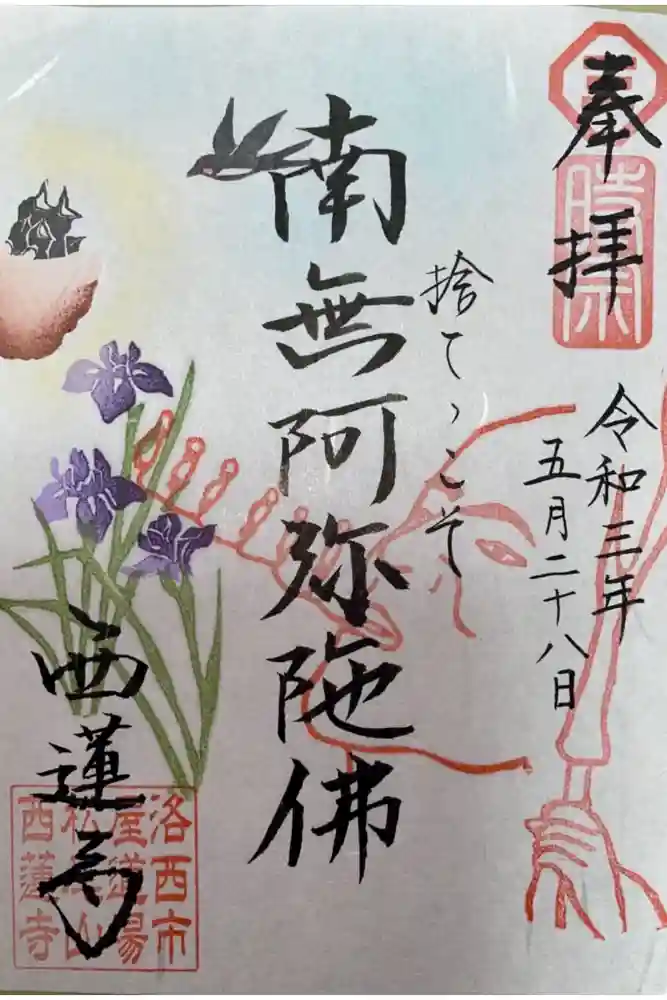 奉拝
令和三年
五月二十八日
捨てゝこそ
南無阿弥陀佛
西蓮寺
時宗
洛西市
屋道場
松山
西蓮寺